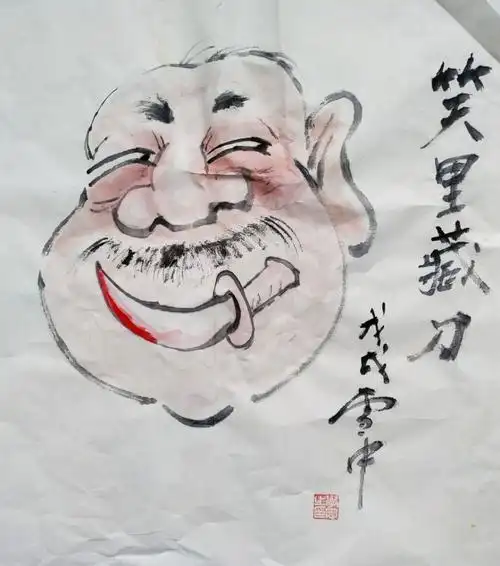 笑里藏刀
戊戌雪中